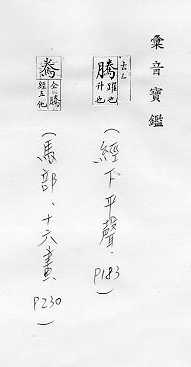 彙音寶鑑
去 騰 躍也 升也
(經下平聲．P183)
騫 仝騰 經五他
(馬部、十六畫 P230)